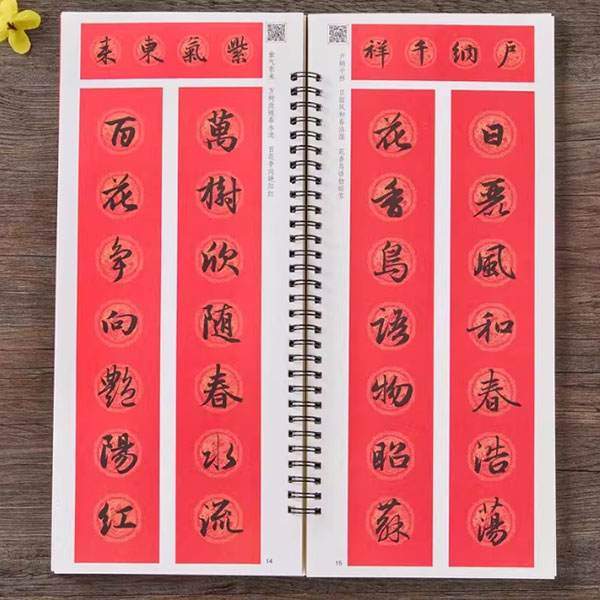 紫氣東来
萬樹欣随春水流
百花争向艷陽红
紫气东来 万树欣随春水流 百花争向艳阳红
14
户納千祥
日麗風和春浩蕩
花香鳥語物昭蘇
户纳千祥 日丽风和春浩荡 花香鸟语物昭苏
15